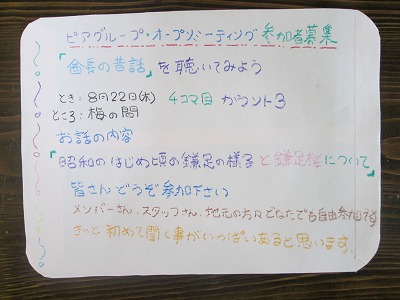 ピアグループ・オープンミーティング 参加者募集
「酋長の昔話」を聴いてみよう
とき：8月22日(木) 4コマ目 カウント3
ところ：梅の間
お話の内容
「昭和のはじめ頃の鎌足の様子と鎌足桜について」
皆さんどうぞ参加下さい
メンバーさん、スタッフさん、地元の方々どなたでも自由参加です
きっと初めて聞く事がいっぱいあると思います。